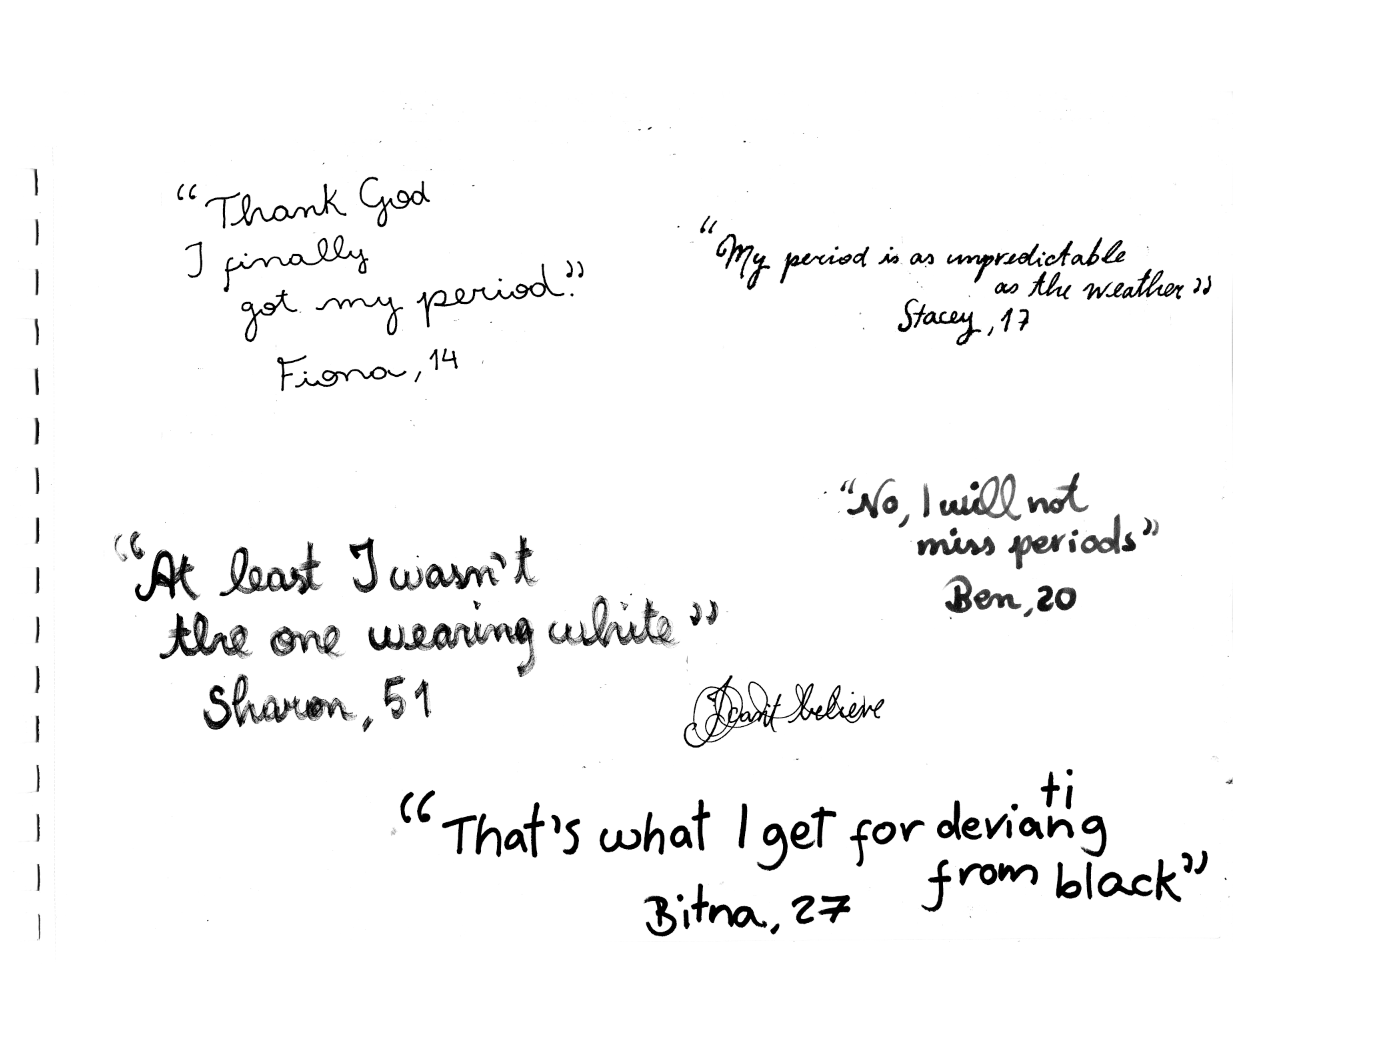 “Thank God
I finally
got my period.”
Fiona, 14
“My period is as unpredictable
as the weather”
Stacey, 17
“No, I will not
miss periods”
Ben, 20
“At least I wasn't
the one wearing white”
Sharon, 51
I can't believe
“That's what I get for deviating
from black”
Bitna, 27